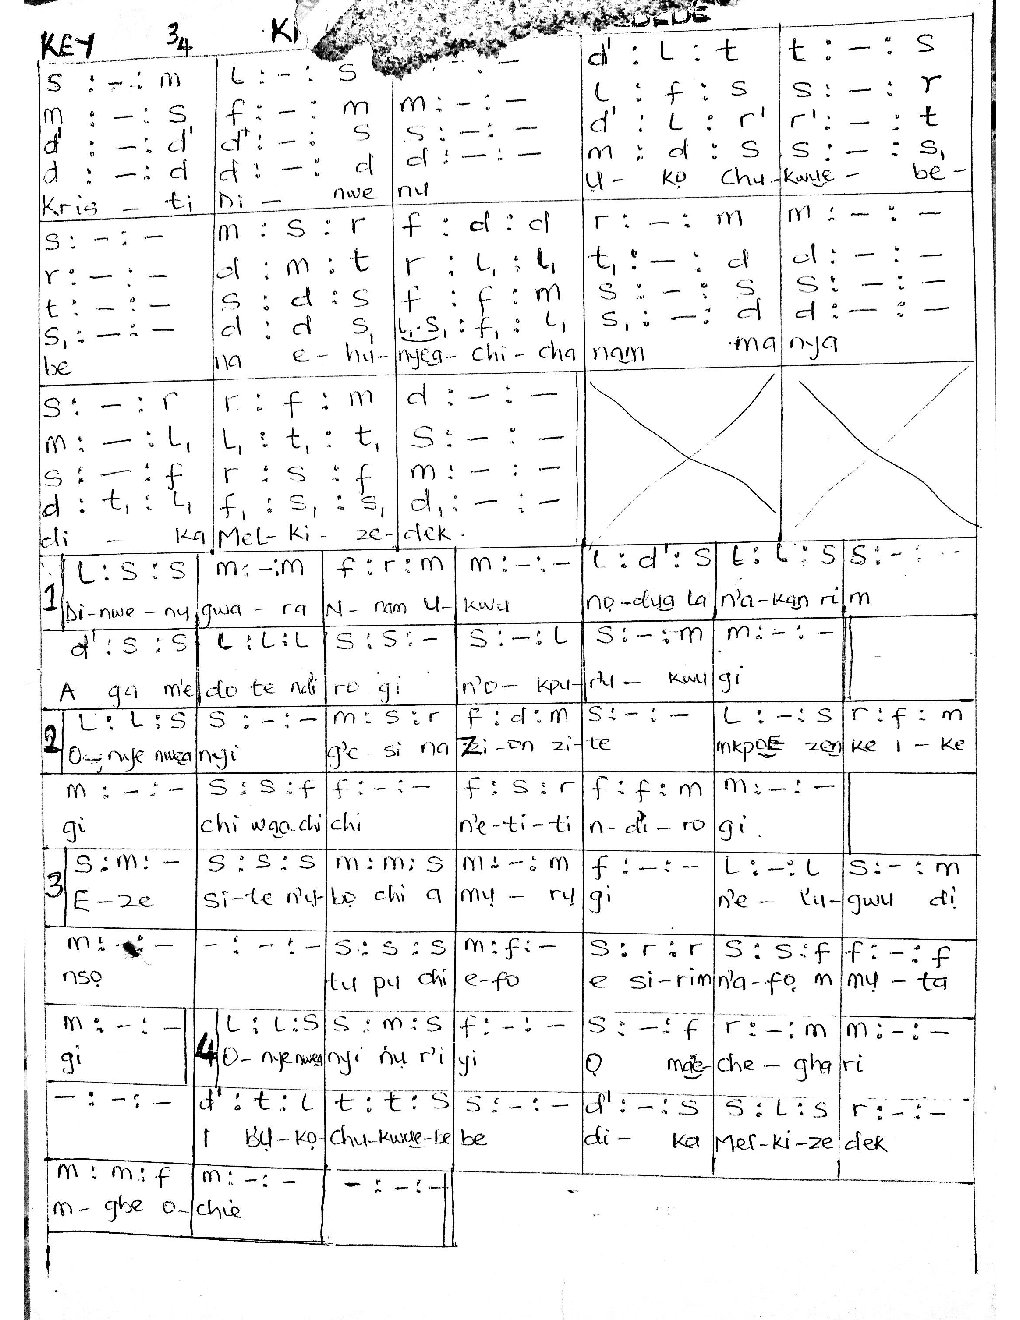 KEY 3/4 KI
s : – : m | L : – : s | – | d' : L : t | t : – : s
m : – : s | f : – : m | m : – : – | L : f : s | s : – : r
d' : – : d' | d' : – : s | s : – : – | d' : L : r' | r' : – : t
d : – : d | d : – : d | d : – : – | m : d : s | s : – : s₁
Kris – ti | Di – nwe | nu | U – ko Chu- | kwue – be-
s : – : – | m : s : r | f : d : d | r : – : m | m : – : –
r : – : – | d : m : t | r : L₁ : L₁ | t₁ : – : d | d : – : –
t : – : – | s : d : s | f : f : m | s : – : s | s : – : –
s₁ : – : – | d : d s₁ | L₁.s₁ : f₁ : L₁ | s₁ : – : d | d : – : –
be | na e – hu- | nyea – chi – cha | nam ma | nya
s : – : r | r : f : m | d : – : –
m : – : L₁ | L₁ : t₁ : t₁ | s : – : –
s : – : f | r : s : f | m : – : –
d : t₁ : L₁ | f₁ : s₁ : s₁ | d₁ : – : –
di – ka | Mel – ki – ze- | dek.
1 | L : s : s | m : – : m | f : r : m | m : – : – | L : d' : s | L : L : s | s : – : –
Di-nwe-nụ | gwa – ra | N – nam U- | kwu | nọ-dụa la | n'a-kan ri | m
d' : s : s | L : L : L | s : s : – | s : – : L | s : – : m | m : – : –
A ga m'e | do te ndi | ro gi | n'o – kpu- | rụ – kwu | gi
2 | L : L : s | s : – : – | m : s : r | f : d : m | s : – : – | L : – : s | r : f : m
O – nye nwea | nyi | g'e si na | Zi-on zi- | te | mkpọE zen | ke i – ke
m : – : – | s : s : f | f : – : – | f : s : r | f : f : m | m : – : –
gi | chi wga.chi | chi | n'e-ti-ti | n-di-ro | gi.
3 | s : m : – | s : s : s | m : m : s | m : – : m | f : – : – | L : – : L | s : – : m
E – ze | si-te n'ụ- | bọ chi a | mụ – rụ | gi | n'e – l'u- | gwu dị
m : – : – | – : – : – | s : s : s | m : f : – | s : r : r | s : s : f | f : – : f
nsọ | tu pu chi | e-fo | e si-rim | n'a-fọ m | mụ – ta
m : – : – | 4 | L : L : s | s : m : s | f : – : – | s : – : f | r : – : m | m : – : –
gi | O – nye nwea | nyi ńụ r'i | yi | Ọ mae | che – gha | ri
– : – : – | d' : t : L | t : t : s | s : – : – | d' : – : s | s : L : s | r : – : –
I BỤ-kọ | Chu-kwue-be | be | di – ka | Mel-ki-ze | dek
m : m : f | m : – : – | – : – : –
m – gbe o – | chie